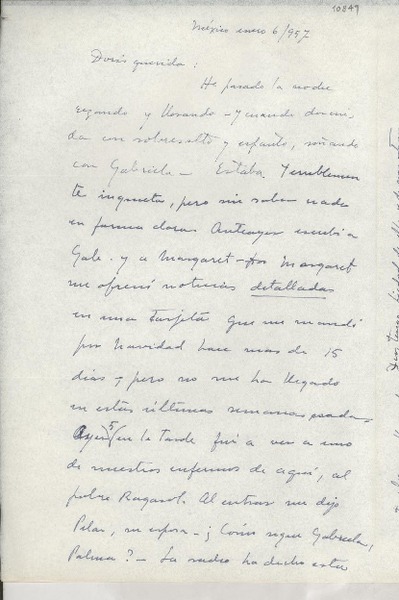 10849
México enero 6/957
Doris querida:
He pasado la noche
rezando y llorando - y cuando dormi-
da con sobresalto y espanto, soñando
con Gabriela - Estaba terriblemen
te inquieta, pero sin saber nada
en forma clara. Anteayer escribí a
Gab. y a Margaret - Margaret
me ofreció noticias detalladas
en una tarjeta que me mandó
por Navidad hace mas de 15
dias -, pero no me ha llegado
en estas últimas semanas
Ayer 5 en la tarde fuí a ver a uno
de nuestros enfermos de aquí, al
pobre Ragasol. Al entrar me dijo
Pilar, su esposa - ¡Cómo sigue Gabriela,
Palma? - La radio ha dicho esta